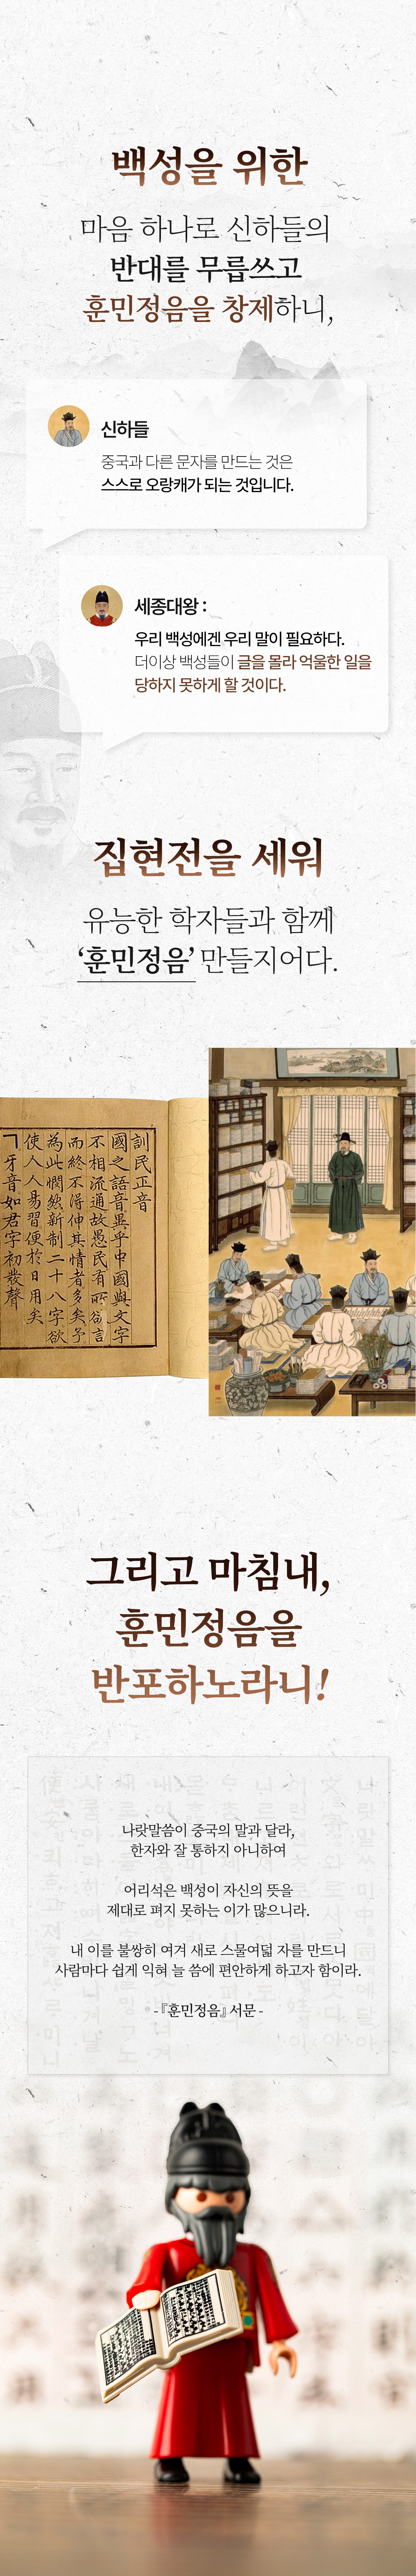 백성을 위한
마음 하나로 신하들의
반대를 무릅쓰고
훈민정음을 창제하니,
신하들
중국과 다른 문자를 만드는 것은
스스로 오랑캐가 되는 것입니다.
세종대왕 :
우리 백성에겐 우리 말이 필요하다.
더이상 백성들이 글을 몰라 억울한 일을
당하지 못하게 할 것이다.
집현전을 세워
유능한 학자들과 함께
‘훈민정음’ 만들지어다.
訓民正音
國之語音異乎中國與文字
不相流通故愚民有所欲言
而終不得伸其情者多矣予
為此憫然新制二十八字欲
使人人易習便於日用矣
ㄱ牙音如君字初發聲
그리고 마침내,
훈민정음을
반포하노라니!
나랏말씀이 중국의 말과 달라,
한자와 잘 통하지 아니하여
어리석은 백성이 자신의 뜻을
제대로 펴지 못하는 이가 많으니라.
내 이를 불쌍히 여겨 새로 스물여덟 자를 만드니
사람마다 쉽게 익혀 늘 씀에 편안하게 하고자 함이라.
-『훈민정음』 서문-